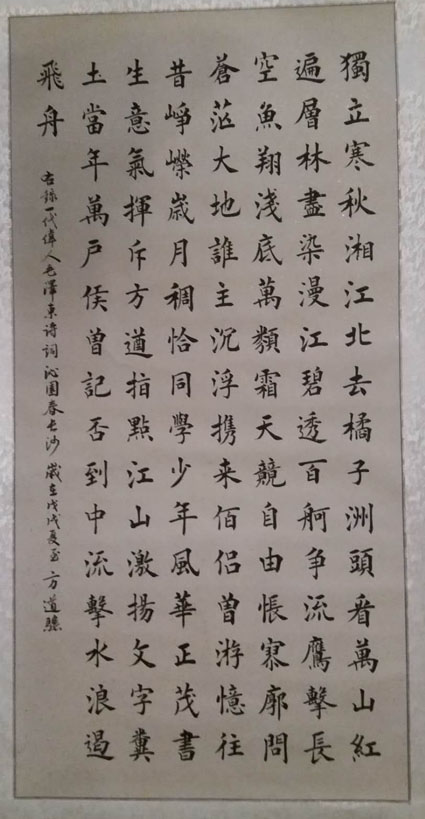 獨立寒秋湘江北去橘子洲頭看萬山紅
遍層林盡染漫江碧透百舸争流鷹擊長
空魚翔淺底萬類霜天競自由悵寥廓問
蒼茫大地誰主沉浮携来佰侣曾游憶往
昔崢嶸歲月稠恰同學少年風華正茂書
生意氣揮斥方遒指點江山激揚文字糞
土當年萬戶侯曾記否到中流擊水浪遏
飛舟
右録一代偉人毛澤東诗詞沁園春长沙 歲在戊戌夏至 方道